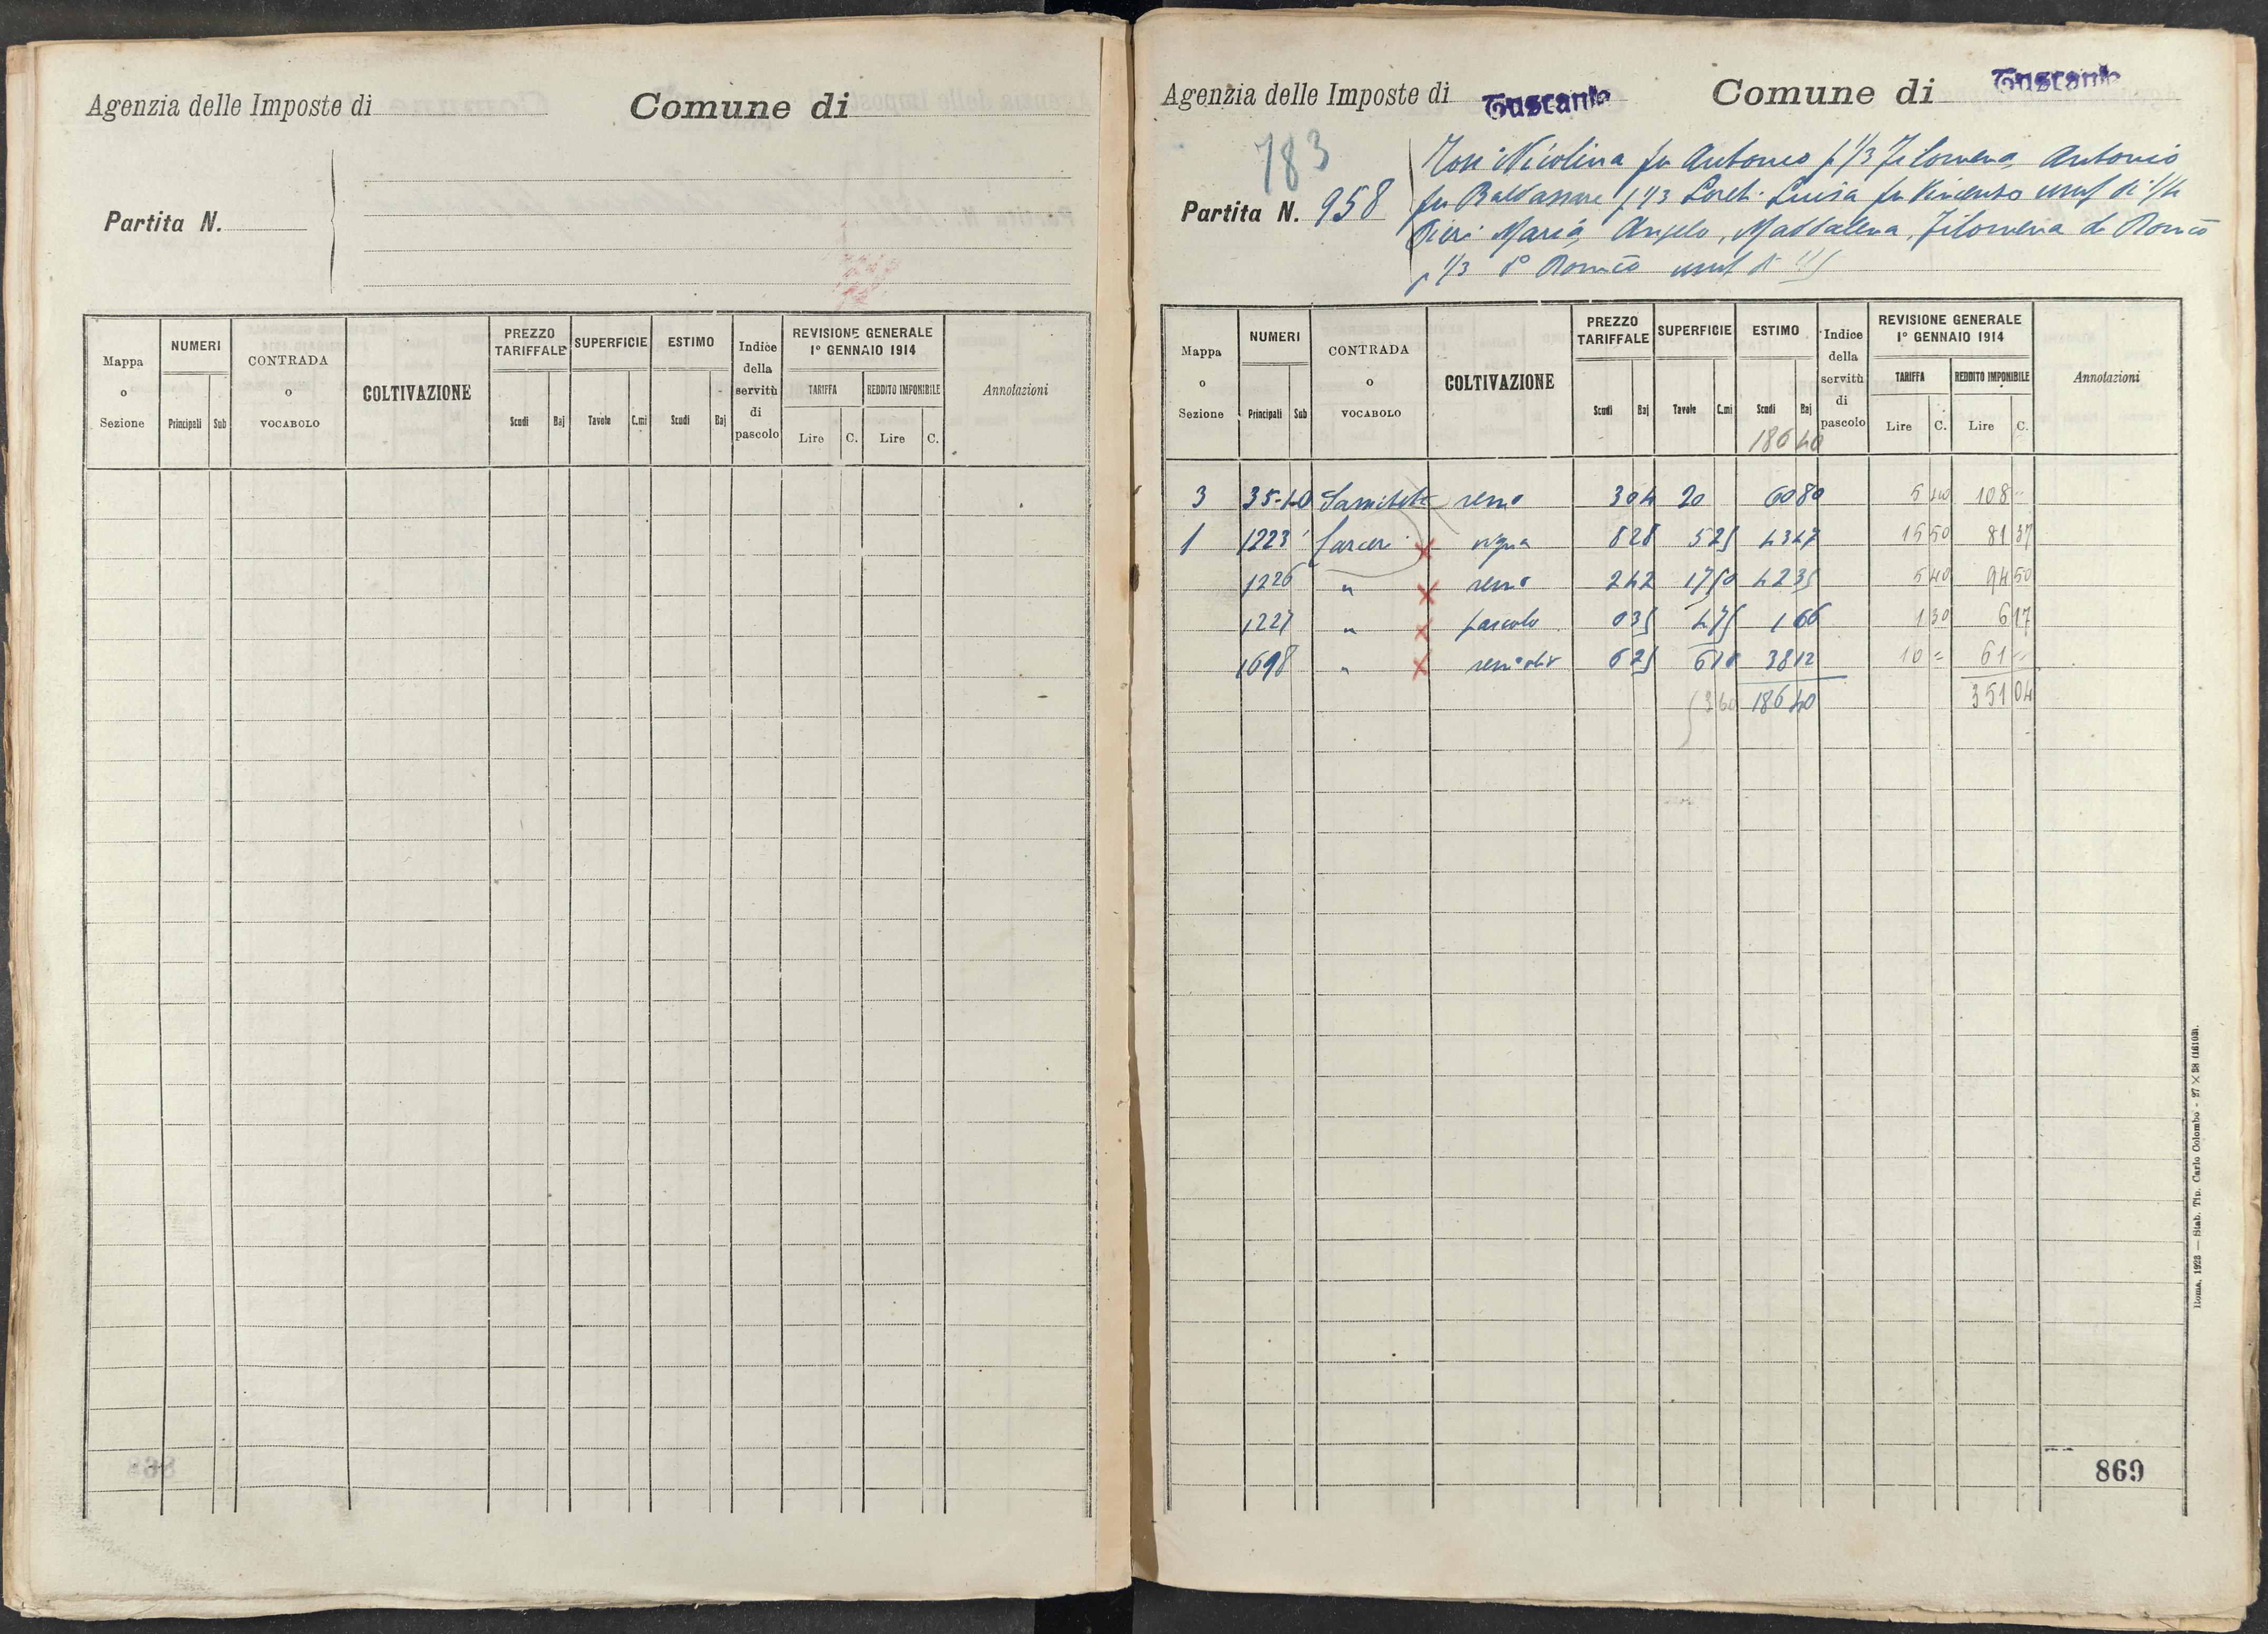 Agenzia delle Imposte di Comune di
Partita N.
Mappa o Sezione
NUMERI
Principali Sub
CONTRADA o VOCABOLO
COLTIVAZIONE
PREZZO TARIFFALE
Scudi Baj
SUPERFICIE
Tavole C.mi
ESTIMO
Scudi Baj
Indice della servitù di pascolo
REVISIONE GENERALE
1° GENNAIO 1914
TARIFFA REDDITO IMPONIBILE
Lire C. Lire C.
Annotazioni
Agenzia delle Imposte di Tuscania Comune di Tuscania
783
Partita N. 958
Nicolina fu Antonio p 1/3 Filomena, Antonio
fu Baldassarre p 1/3 Loreti Luisa fu Vincenzo usuf di
Pieri Maria, Angelo, Maddalena, Filomena di
p 1/3 usuf di
Mappa o Sezione
NUMERI
Principali Sub
CONTRADA o VOCABOLO
COLTIVAZIONE
PREZZO TARIFFALE
Scudi Baj
SUPERFICIE
Tavole C.mi
ESTIMO
Scudi Baj
186 40
Indice della servitù di pascolo
REVISIONE GENERALE
1° GENNAIO 1914
TARIFFA REDDITO IMPONIBILE
Lire C. Lire C.
Annotazioni
3 semo 3 04 20 60 80 5 40 108 =
1 1223 vigna 8 28 5 25 43 47 15 50 81 37
1226 " semo 2 42 17 50 42 35 5 40 94 50
1227 " pascolo 0 35 4 75 1 66 1 30 6 17
1698 " 6 25 6 10 38 12 10 = 61 =
186 40 351 04
869
Roma, 1923 — Stab. Tip. Carlo Colombo - 27 × 38 (16103).